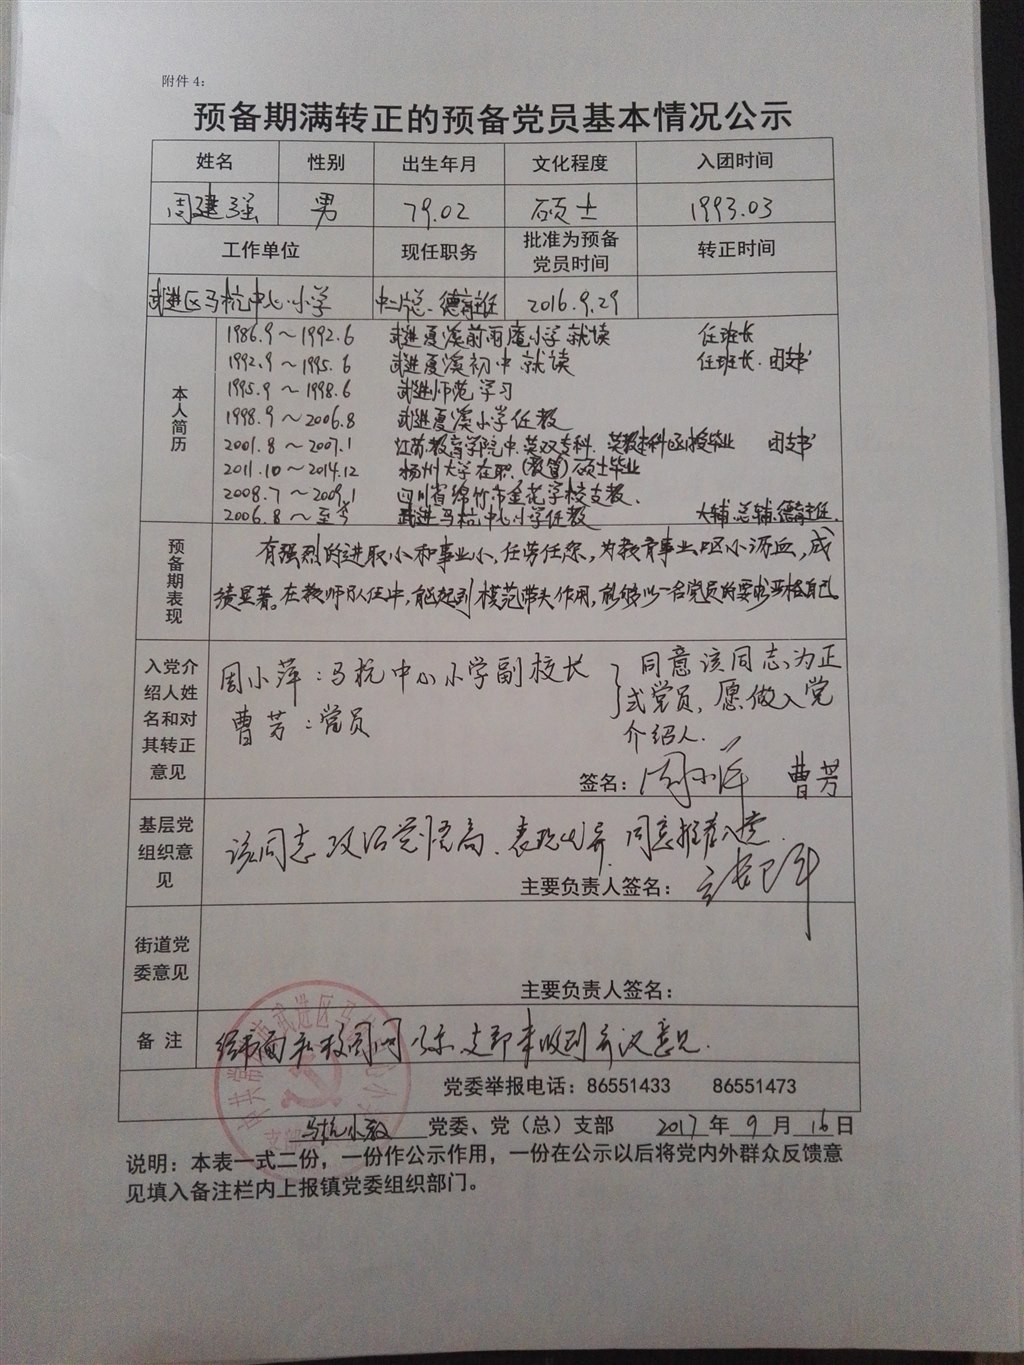 附件 4：
预备期满转正的预备党员基本情况公示
姓名 性别 出生年月 文化程度 入团时间
周建强 男 79.02 硕士 1993.03
工作单位 现任职务 批准为预备党员时间 转正时间
武进区马杭中心小学 德育主任 2016.9.29
本人简历
1986.9～1992.6 武进夏溪前雨庵小学就读 任班长
1992.9～1995.6 武进夏溪初中就读 任班长.团支书
1995.9～1998.6 武进师范学习
1998.9～2006.8 武进夏溪小学任教
2001.8～2007.1 江苏教育学院中.英双专科.英教本科函授毕业 团支书
2011.10～2014.12 扬州大学在职(教管)硕士毕业
2008.7～2009.1 四川省绵竹市金花学校支教.
2006.8～至今 武进马杭中心小学任教 大辅.总辅.德育主任.
预备期表现
有强烈的进取心和事业心,任劳任怨,为教育事业呕心沥血,成
绩显著。在教师队伍中,能起到模范带头作用,能够以一名党员的要求严格自己
入党介绍人姓名和对其转正意见
周小萍：马杭中心小学副校长
曹芳：党员
同意该同志为正
式党员,愿做入党
介绍人.
签名：周小萍 曹芳
基层党组织意见
该同志政治觉悟高、表现优异.同意推荐入党.
主要负责人签名：
街道党委意见
主要负责人签名：
备注
支部未收到异议意见.
党委举报电话：86551433 86551473
马杭小教 党委、党（总）支部 2017 年 9 月 16 日
说明：本表一式二份，一份作公示作用，一份在公示以后将党内外群众反馈意
见填入备注栏内上报镇党委组织部门。